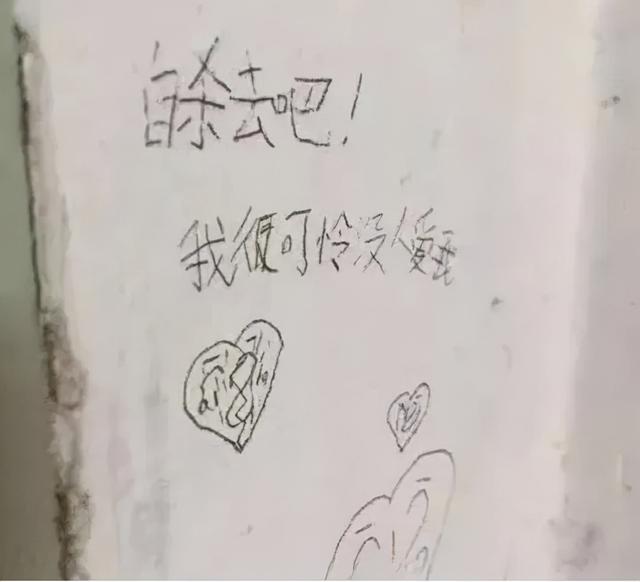 自杀去吧!
我很可怜没人爱我